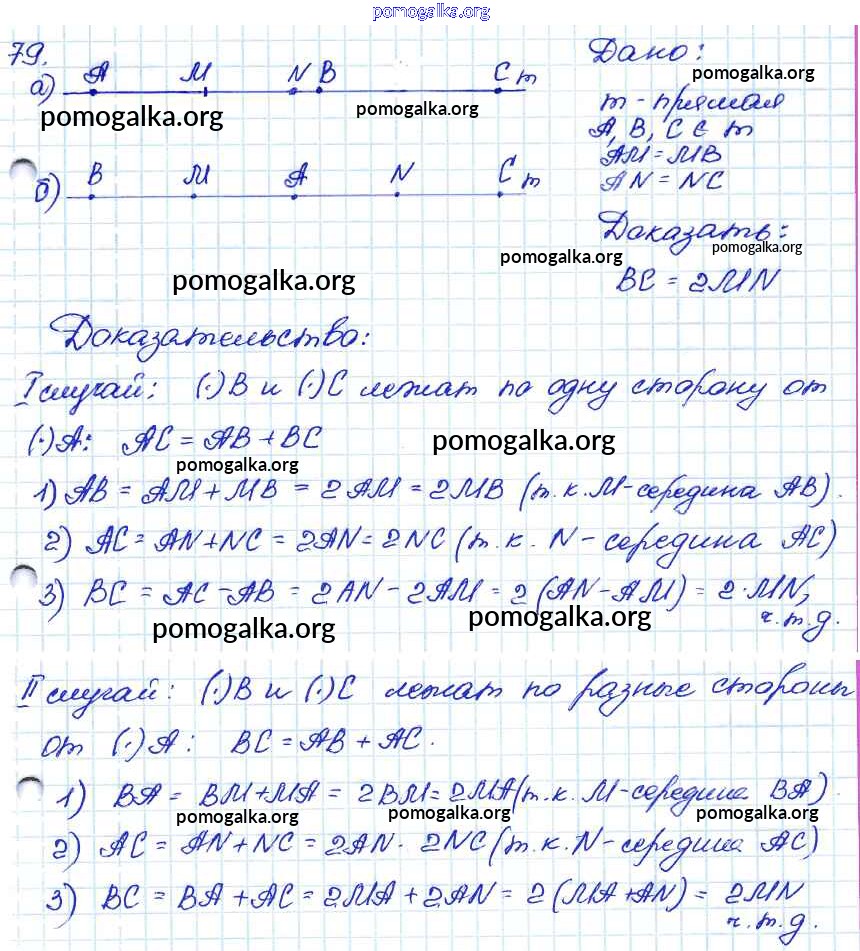 pomogalka.org
79.
а) A M N B C m
pomogalka.org
pomogalka.org
б) B M A N C m
Дано:
pomogalka.org
m - прямая
A, B, C ∈ m
AM = MB
AN = NC
Доказать:
pomogalka.org
pomogalka.org
BC = 2MN
pomogalka.org
Доказательство:
I случай: (·)B и (·)C лежат по одну сторону от
(·)A: AC = AB + BC
pomogalka.org
pomogalka.org
1) AB = AM + MB = 2AM = 2MB (т.к. M-середина AB).
2) AC = AN + NC = 2AN = 2NC (т.к. N-середина AC)
3) BC = AC - AB = 2AN - 2AM = 2(AN - AM) = 2·MN,
ч.т.д.
pomogalka.org
pomogalka.org
II случай: (·)B и (·)C лежат по разные стороны
от (·)A: BC = AB + AC.
1) BA = BM + MA = 2BM = 2MA (т.к. M-середина BA)
pomogalka.org
pomogalka.org
pomogalka.org
2) AC = AN + NC = 2AN · 2NC (т.к. N-середина AC)
3) BC = BA + AC = 2MA + 2AN = 2(MA + AN) = 2MN
ч.т.д.